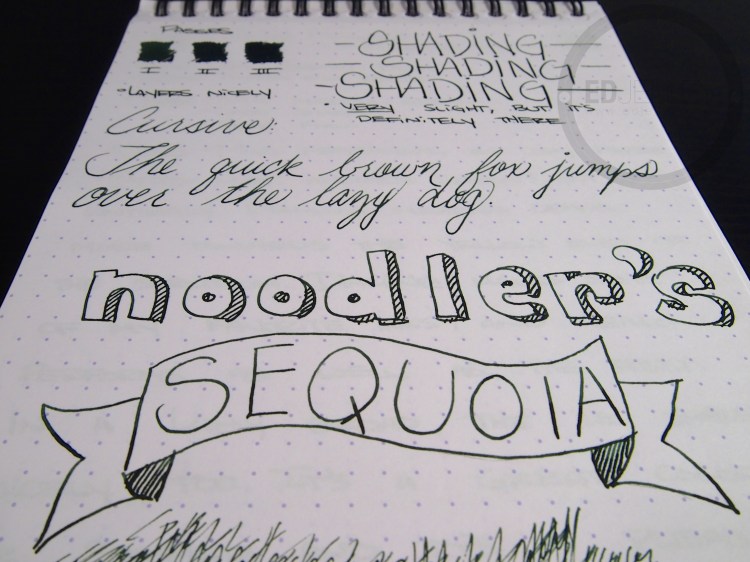 PASSES
I II III
- LAYERS NICELY
SHADING
SHADING
SHADING
· VERY SLIGHT, BUT IT'S
DEFINITELY THERE
Cursive:
The quick brown fox jumps
over the lazy dog.
noodler's
SEQUOIA
ED